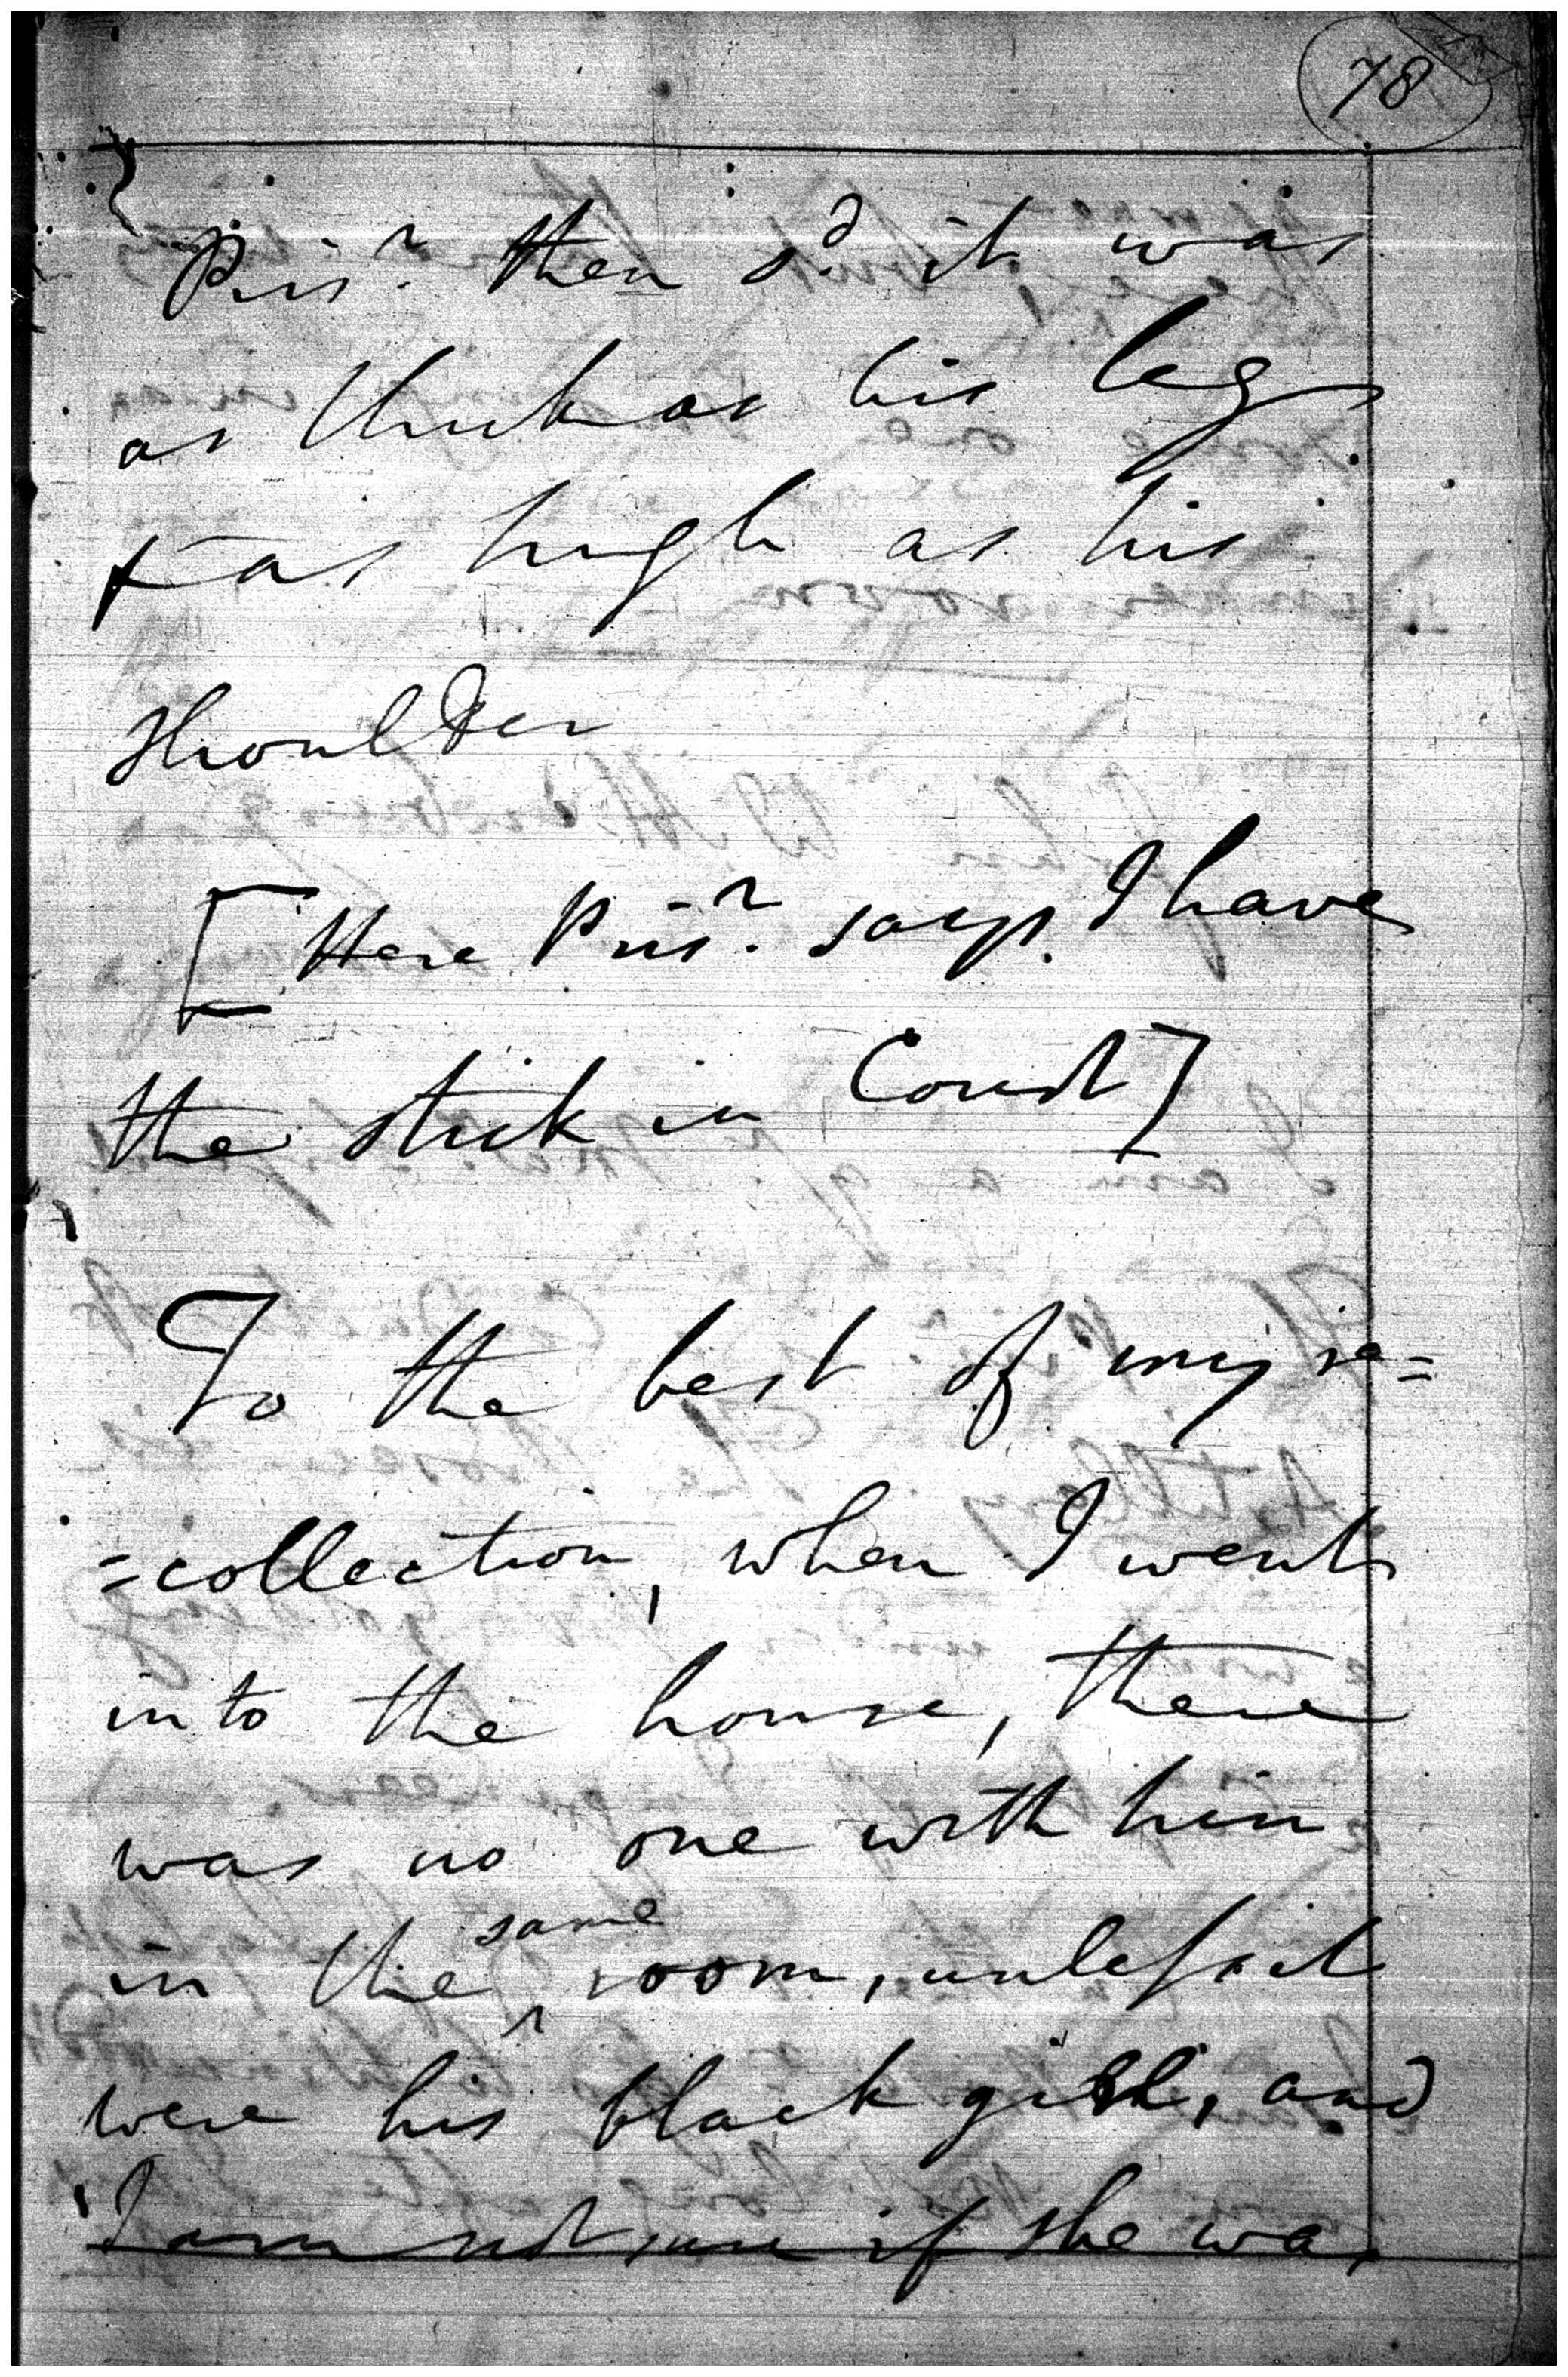 78
Pris.r then s.d it was
as thick as his leg
& as high as his
shoulder
[Here Pris.r says. I have
the stick in Court]
To the best of my re=
=collection, when I went
into the house, there
was no one with him
in the same room, unless it
were his black girl, and
I am not sure if she was